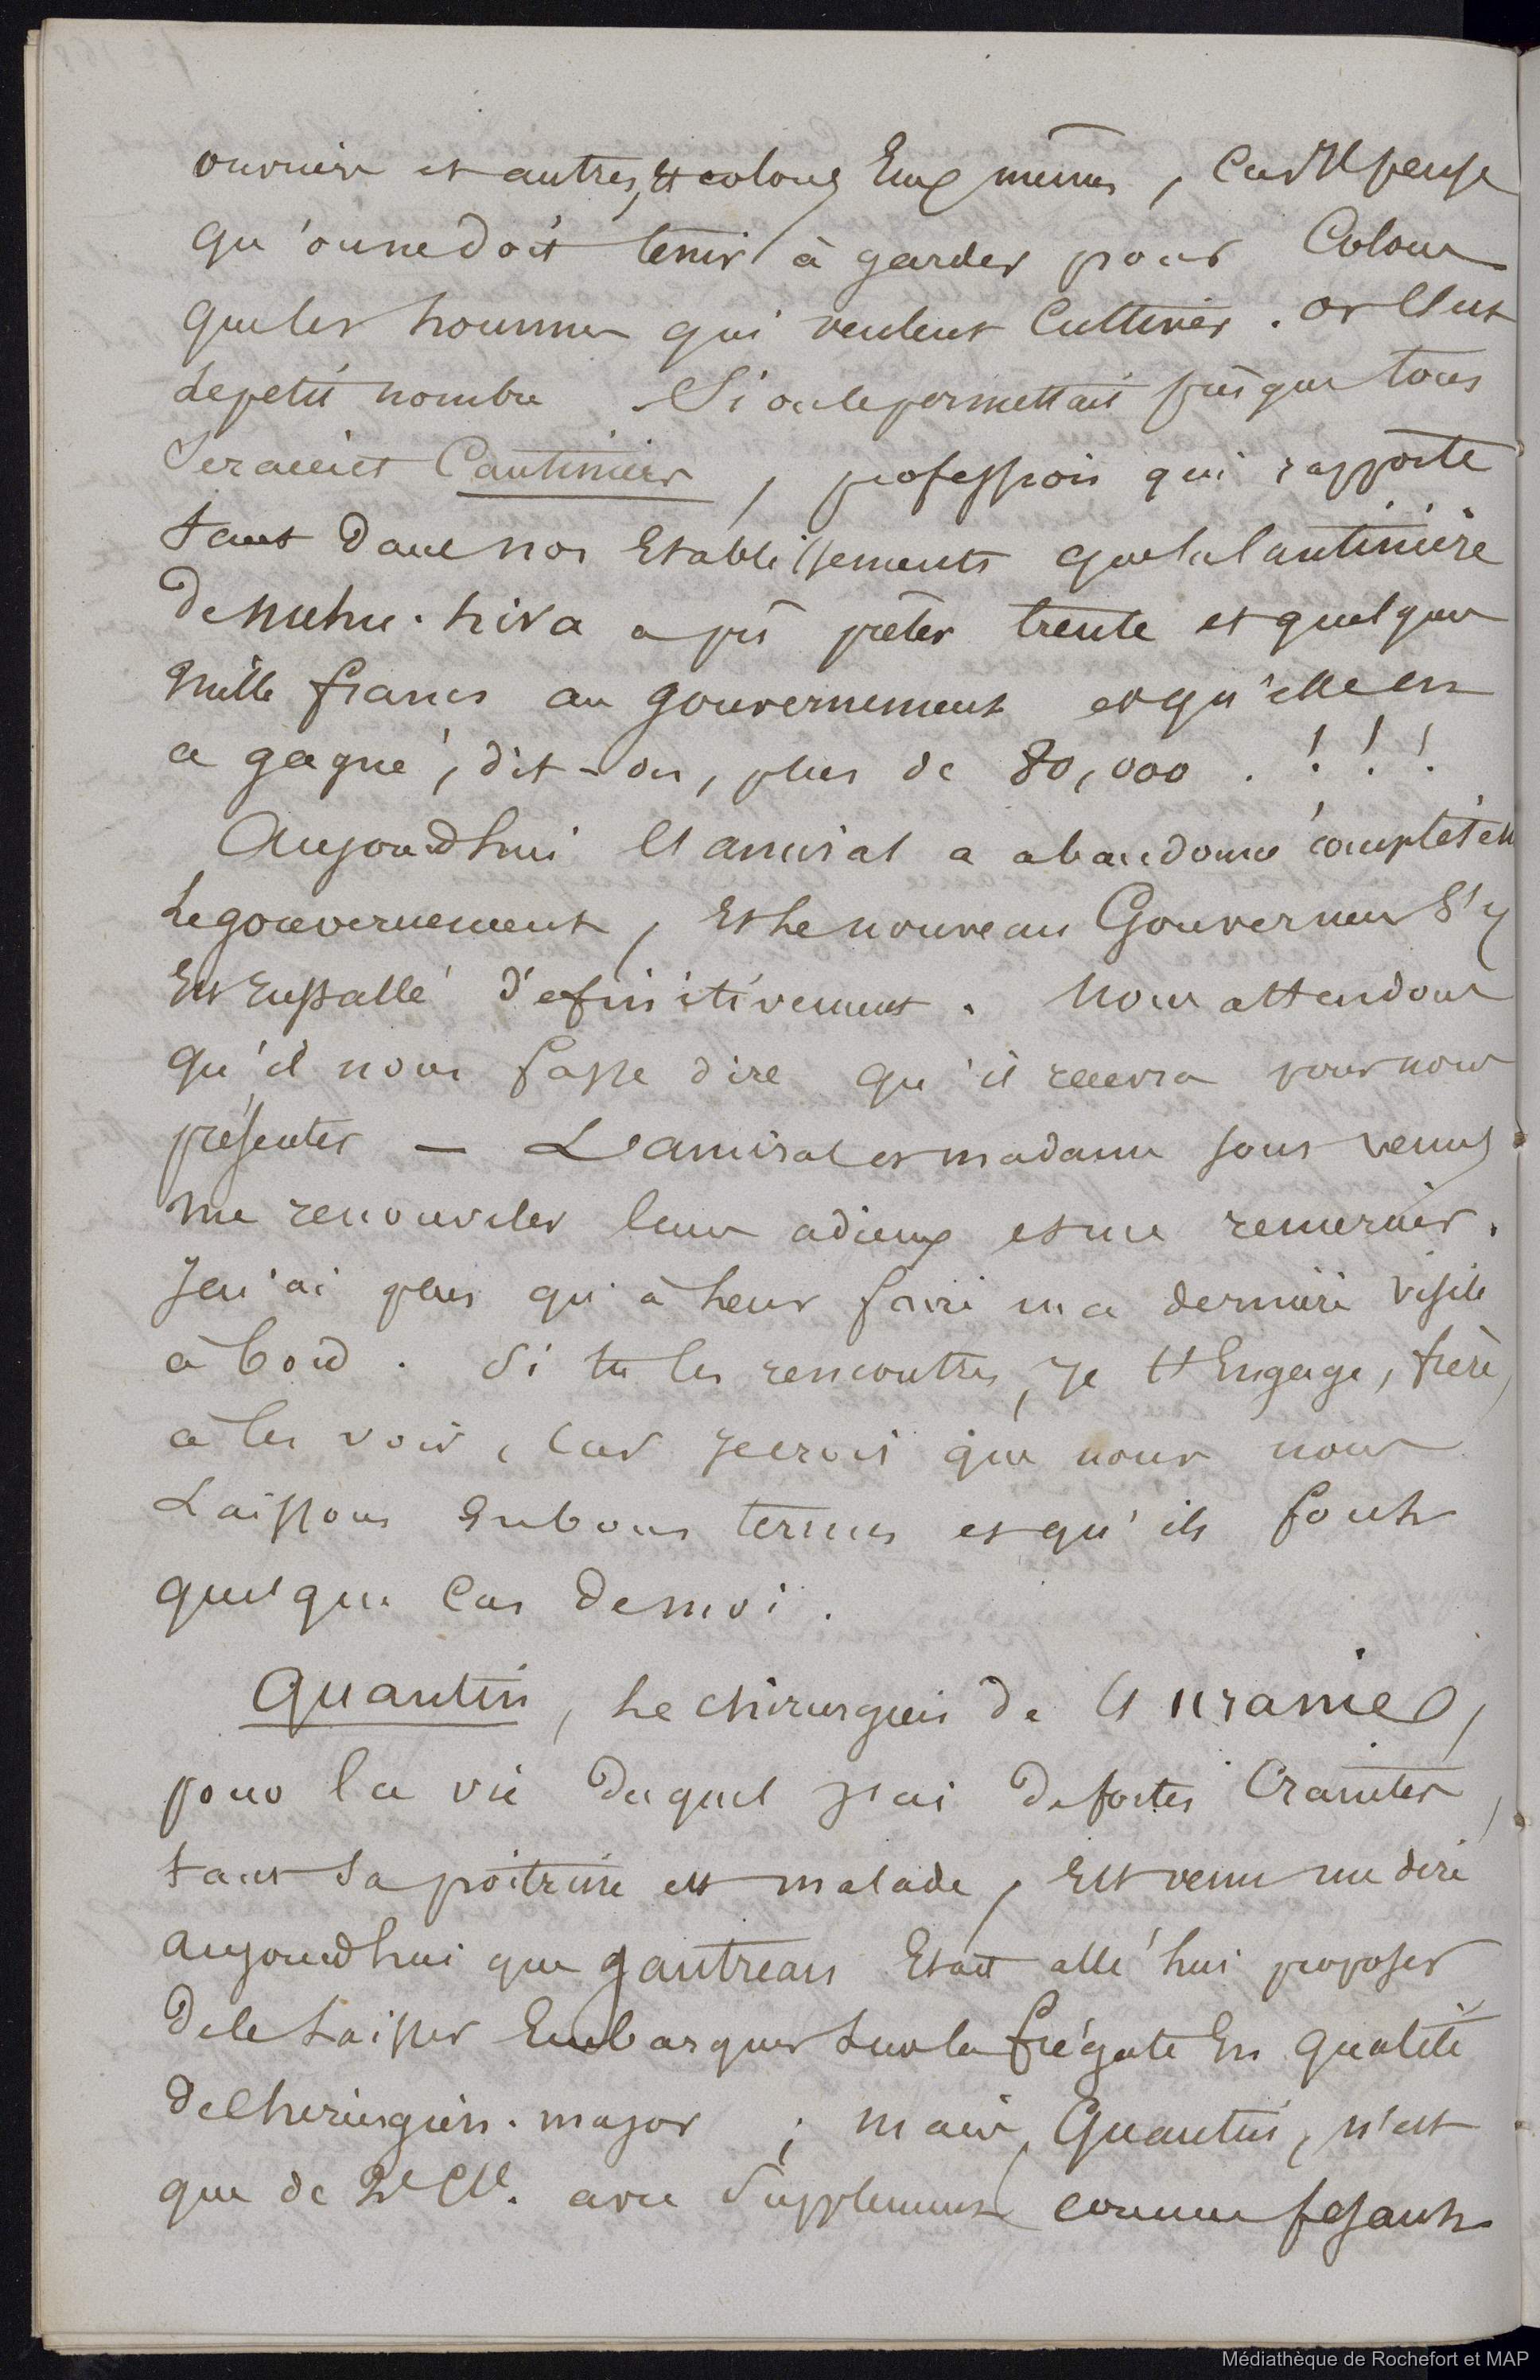 ouvriers et autres, et colons Eux mêmes, car Il pense
qu'on ne doit tenir à garder pour Colons
que les hommes qui veulent Cultiver. or C'est
le petit nombre. Si on le permettait presque tous
Seraient Cantiniers, profession qui rapporte
tant dans nos Etablissements que la Cantinière
de nuhu-hiva a pû prêter trente et quelques
mille francs au gouvernement et qu'elle en
a gagné, dit-on, plus de 80,000 . ! ! !
Aujourd'hui l'amiral a abandonné complètem
le gouvernement, Et le nouveau Gouverneur s'y
Est Installé définitivement. Nous attendons
qu'il nous fasse dire qu'il recevra pour nous
présenter — L'amiral et madame sont venus
me renouveler leurs adieux et me remercier.
Je n'ai plus qu'à leur faire ma dernière visite
à bord. Si tu les rencontres, Je t'Engage, frère,
à les voir, Car Je crois que nous nous
Laissons En bons termes et qu'ils font
quelque Cas de moi.
Quantin, Le chirurgien de l'uranie,
pour la vie duquel j'ai de fortes Craintes,
tant Sa poitrine est malade, Est venu me dire
aujourd'hui que gautreau Etait allé lui proposer
de le Laisser Embarquer sur la frégate En qualité
de Chirurgien-major ; mais, Quantin, n'est
que de 2e Cl. avec Supplément comme fesant